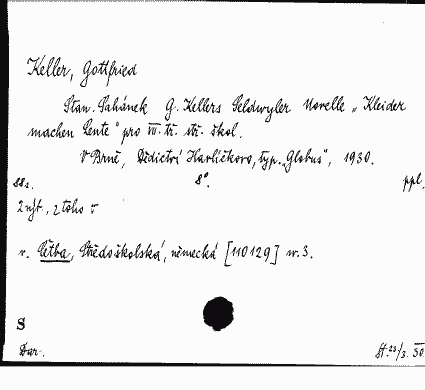 Keller, Gottfried
Stan. Sahánek G. Kellers Seldwyler Novelle „Kleider
machen Leute" pro VII. tř. stř. škol.
V Brně, Dědictví Havlíčkovo, typ. „Globus", 1930.
88 s. 8°. ppl.
2 výt., z toho v
v. Četba, Středoškolská, německá [110129] nr. 3.
S
Dar. 30